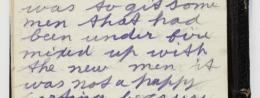 was to git some
men that had
been under fire
mixed up with
the new men it
was not a happy